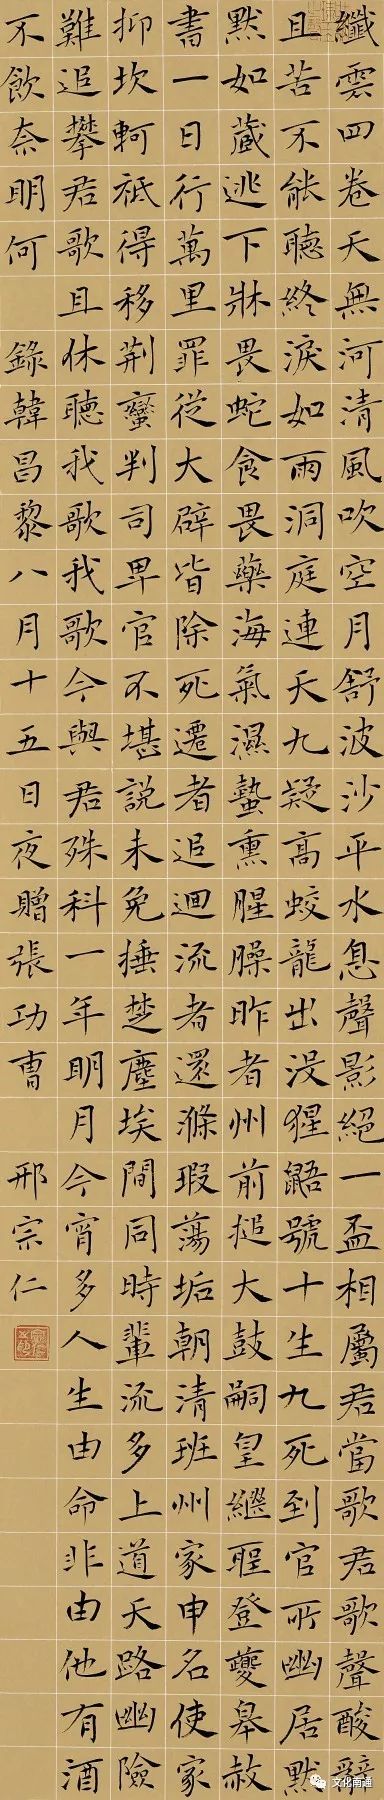 纖雲四卷天無河清風吹空月舒波沙平水息聲影絕一盃相屬君當歌君歌聲酸辭
且苦不能聽終淚如雨洞庭連天九疑高蛟龍出没猩鼯號十生九死到官所幽居默
默如藏逃下牀畏蛇食畏藥海氣濕蟄熏腥臊昨者州前搥大鼓嗣皇繼聖登夔皋赦
書一日行萬里罪從大辟皆除死遷者追迴流者還滌瑕蕩垢朝清班州家申名使家
抑坎軻祗得移荊蠻判司卑官不堪說未免捶楚塵埃間同時輩流多上道天路幽險
難追攀君歌且休聽我歌我歌今與君殊科一年明月今宵多人生由命非由他有酒
不飲奈明何 錄韓昌黎八月十五日夜贈張功曹 邢宗仁
文化南通